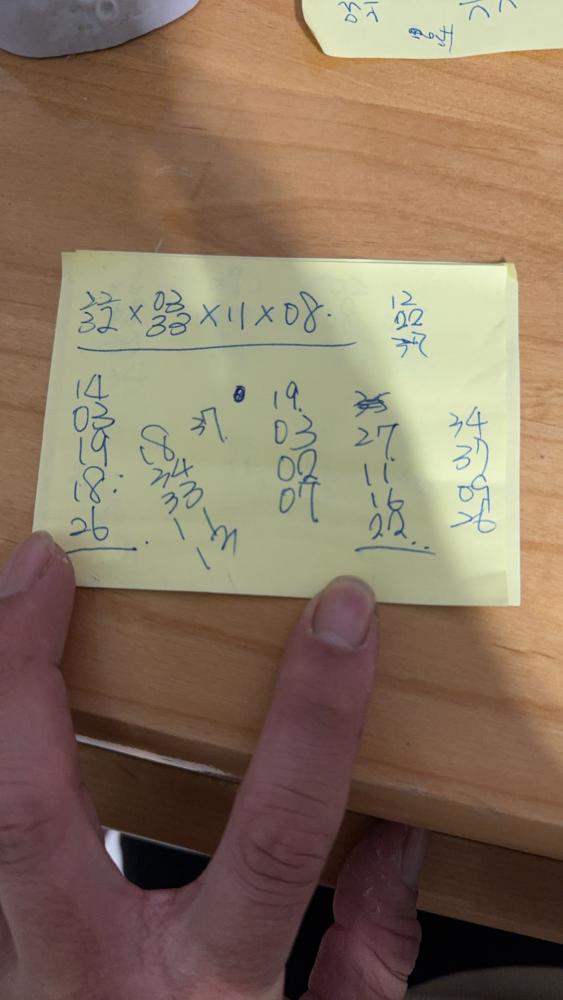 22 03
32 × 33 × 11 × 08.
12
22
37
14
03
19
18:
26
18
34
33
11
37.
19.
03
02
07
27
11
16
22
34
37
09
26